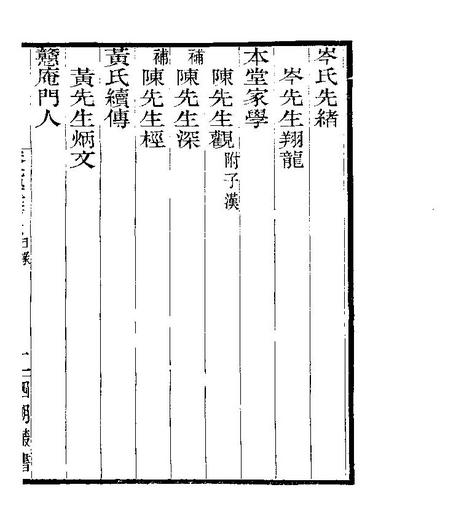 岑氏先緒
岑先生翔龍
本堂家學
陳先生觀附子漢
補陳先生深
補陳先生桱
黃氏續傳
黃先生炳文
戇庵門人
四明叢書